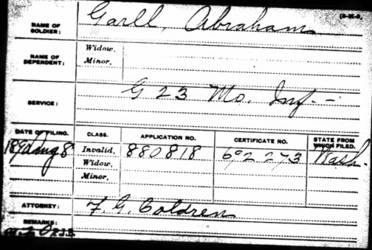 NAME OF SOLDIER: Garll, Abraham
NAME OF DEPENDENT: Widow,
Minor,
SERVICE: G 23 Mo. Inf.
DATE OF FILING. CLASS. APPLICATION NO. CERTIFICATE NO. STATE FROM WHICH FILED.
Aug 8 Invalid, 880818 692273 Wash.
Widow,
Minor,
ATTORNEY: F. G. Coldren
REMARKS: